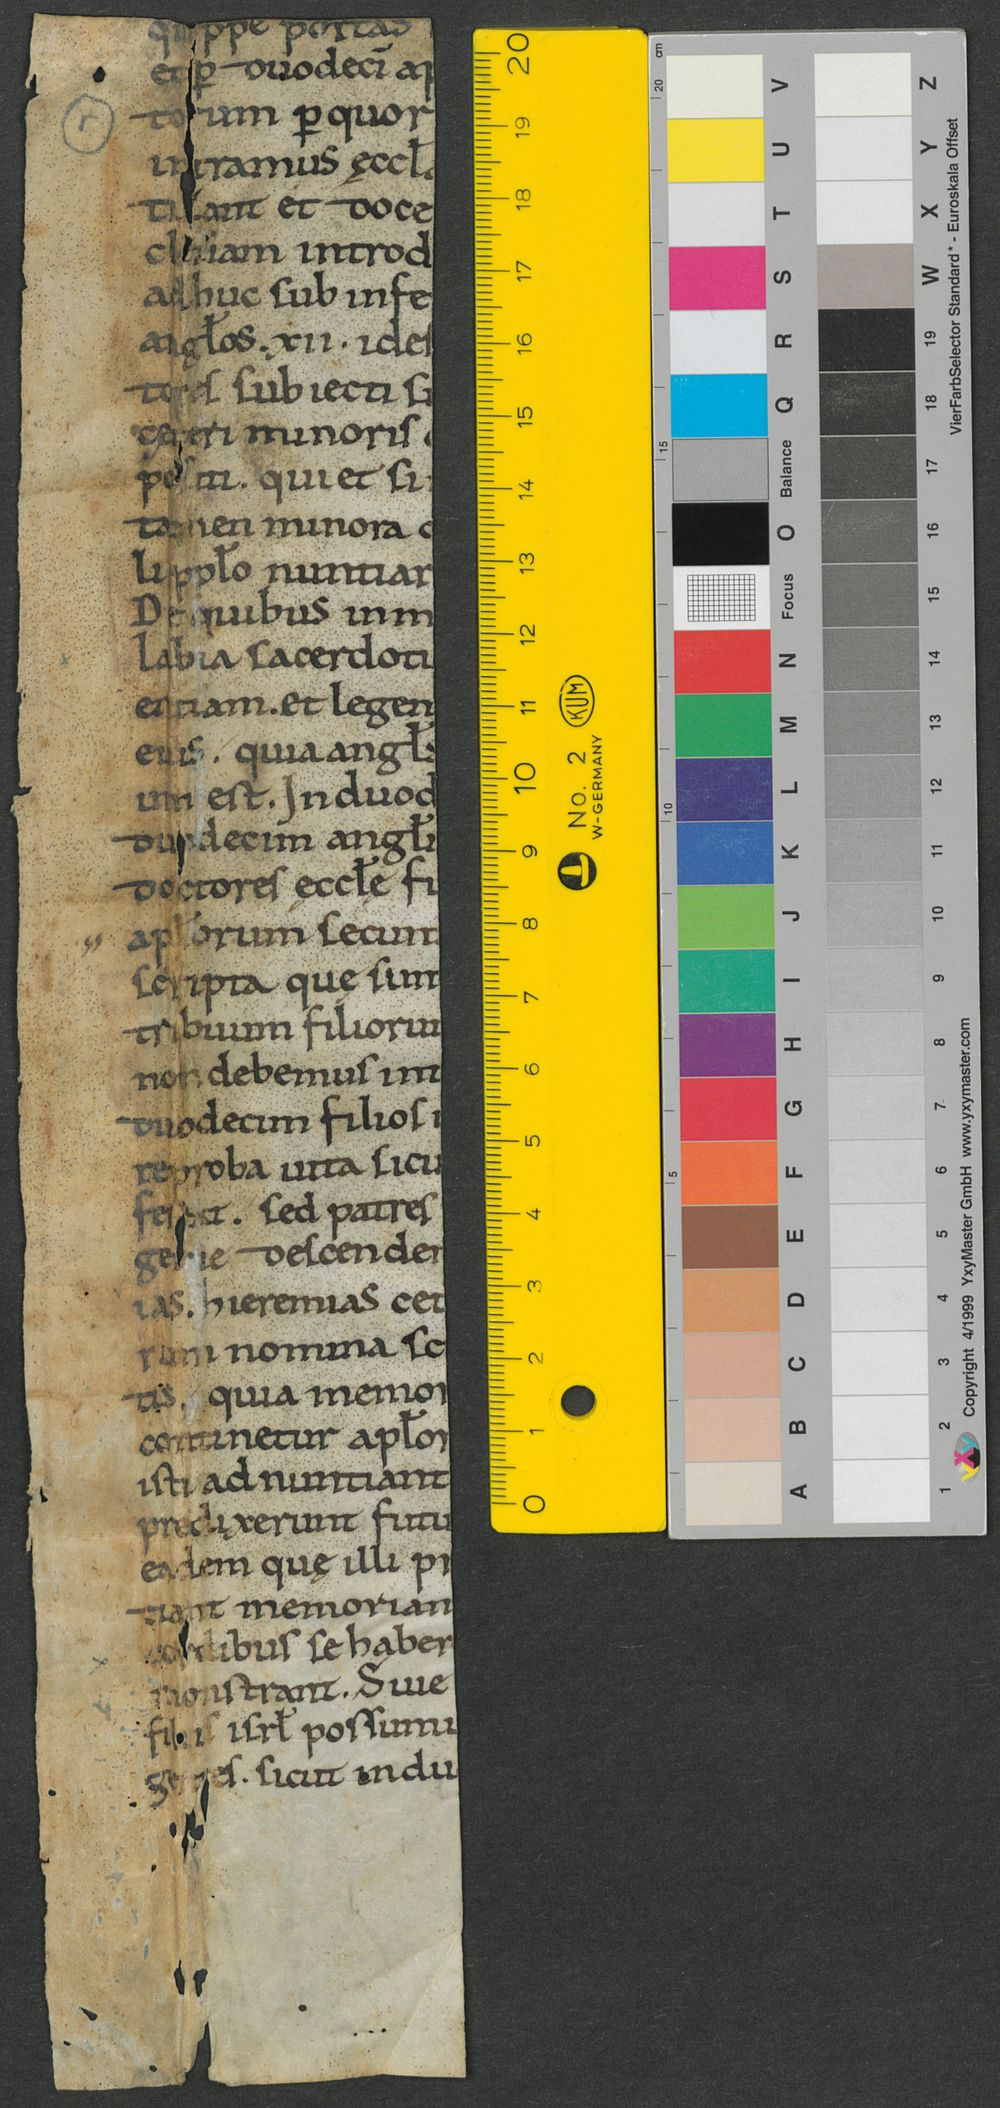 quippe portas
et p̄ duodecī ap
torum p̄ quor
intramus ęccl̄
tiant et doce
clesiam introd
adhuc sub infe
angl̄os. xii. ides
tores subiecti s
ceteri minoris
positi. qui et si
tamen minora
li ppl̄o nuntiar
De quibus in m
labia sacerdoti
entiam. et legem
eius. quia angl̄s
um est. In duod
duodecim angl̄i
doctores eccl̄ę fi
apl̄orum secun
scripta que sunt
tribuum filiorum
non debemus int
duodecim filios
reproba uita sicu
fecerat. sed patres
genie descender
ias. hieremias cet
rum nomina sc
tis. quia memor
continetur apl̄or
isti adnuntiant
predixerunt futu
eadem quę illi pr
tiant memoriam
cordibus se haber
monstrant. Siue
filiis isrl̄ possumu
gentes. sicut in du
r
20 19 18 17 16 15 14 13 12 11 10 9 8 7 6 5 4 3 2 1 0
KUM
No. 2
W-GERMANY
cm
20
15
10
5
V
U
T
S
R
Q
Balance
O
Focus
N
M
L
K
J
I
H
G
F
E
D
C
B
A
Z
Y
X
W
19
18
17
16
15
14
13
12
11
10
9
8
7
6
5
4
3
2
1
VierFarbSelector Standard* - Euroskala Offset
Copyright 4/1999 YxyMaster GmbH www.yxymaster.com
YXY